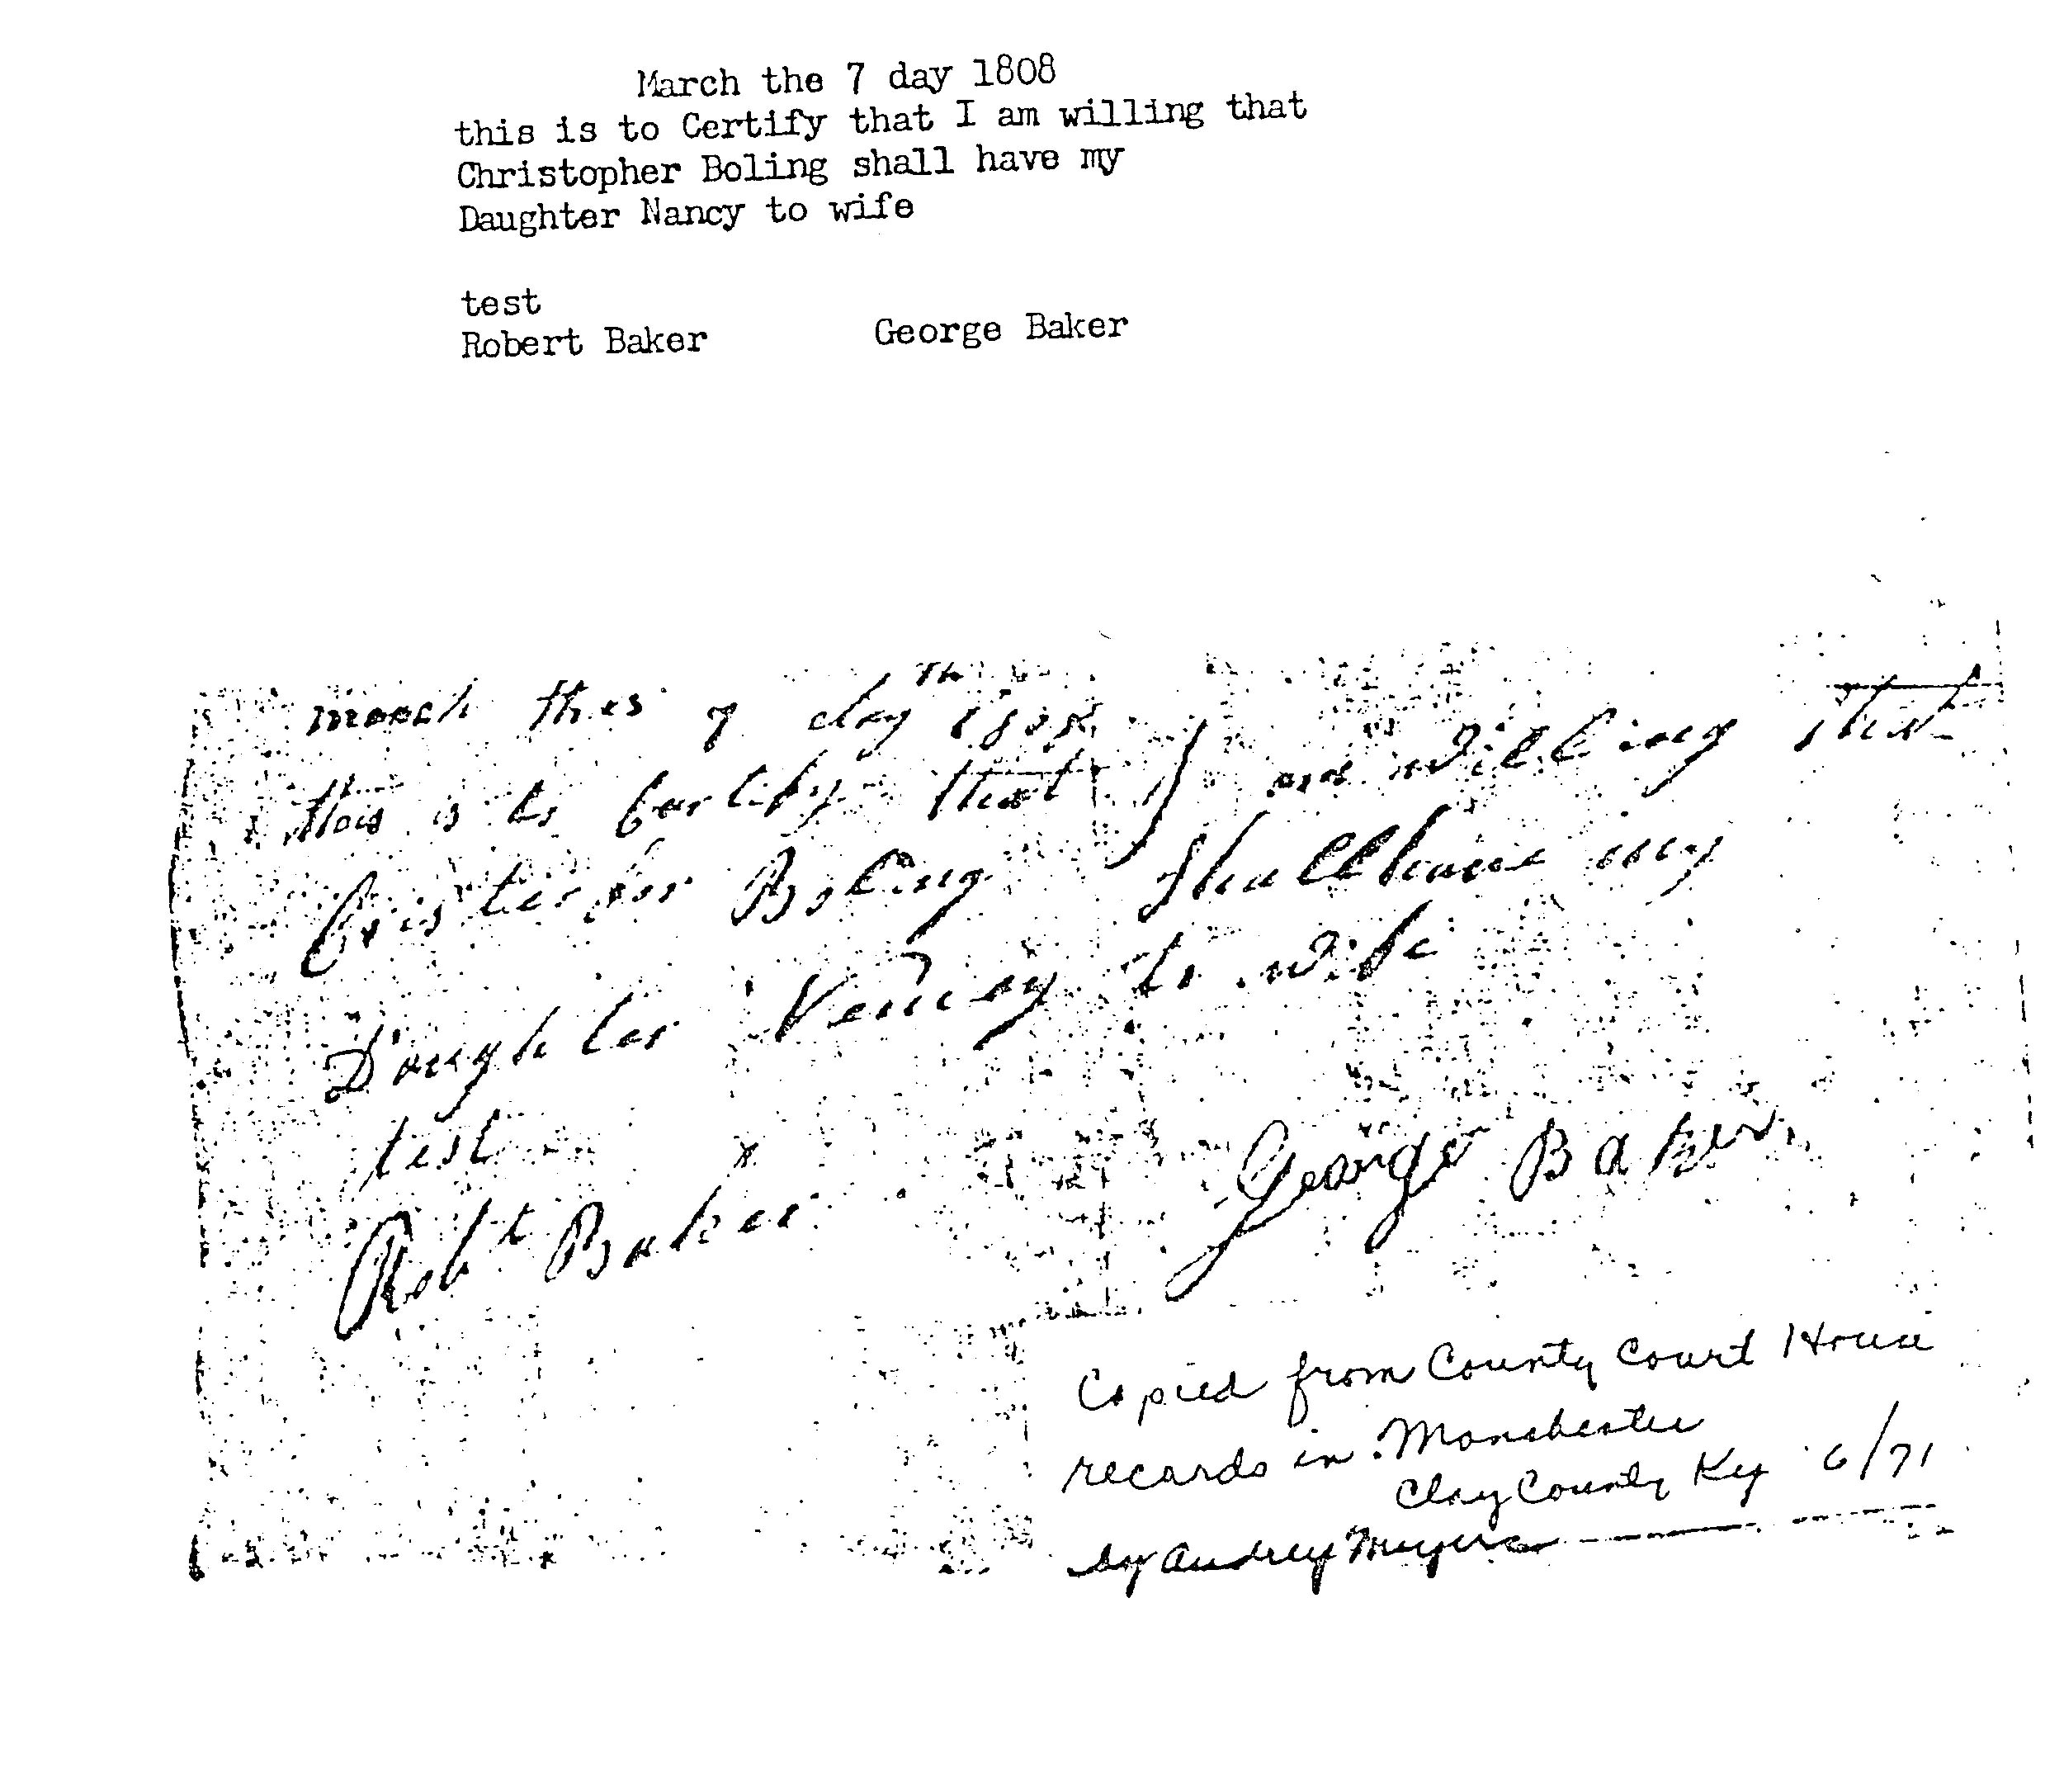 March the 7 day 1808
this is to Certify that I am willing that
Christopher Boling shall have my
Daughter Nancy to wife
test
Robert Baker George Baker
march this 7 day th 1808
this is to Certify that I am willing that
Cristerfor Boling Shall have my
Doughter Nency to wife
test
Robt Baker George Baker
Copied from County Court House
records in Manchester
Clay County Ky 6/71
by Audrey Meyers